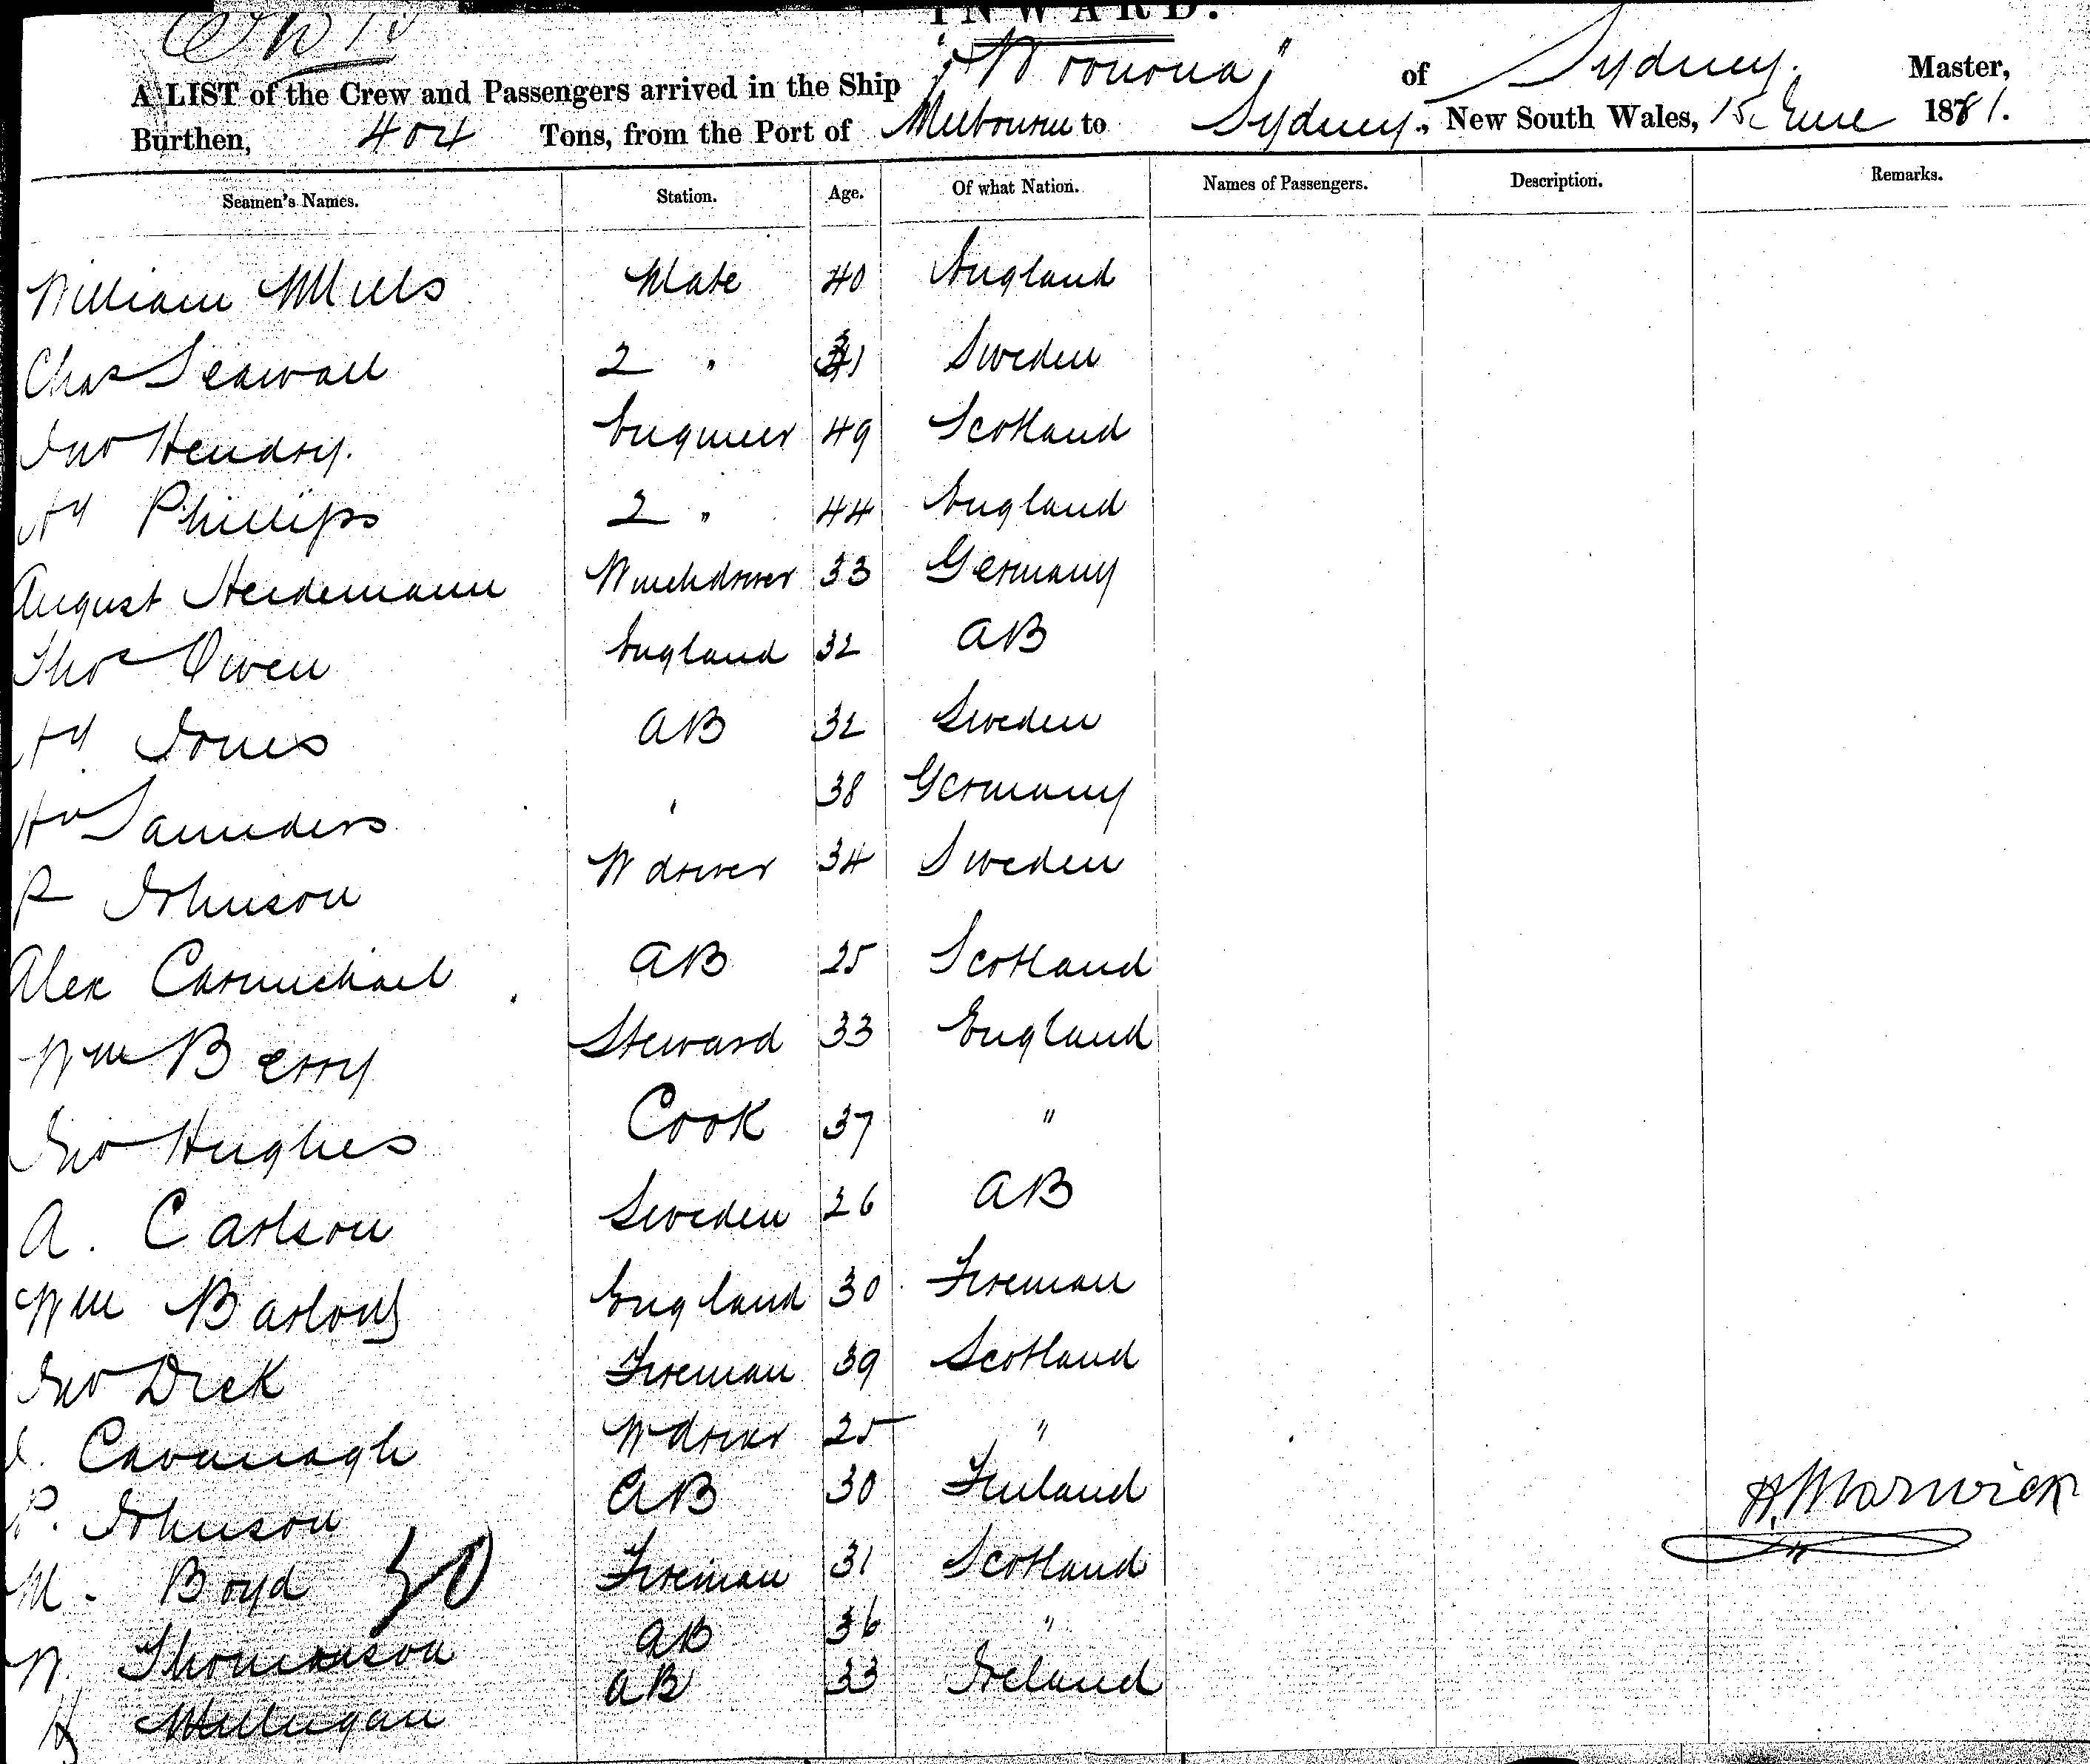 INWARD.
A LIST of the Crew and Passengers arrived in the Ship "Woonona" of Sydney. Master,
Burthen, 404 Tons, from the Port of Melbourne to Sydney., New South Wales, 15 June 1881.
Seamen's Names. Station. Age. Of what Nation. Names of Passengers. Description. Remarks.
William Mills Mate 40 England
Chas Seawall 2 " Sweden
Jno Hendry. Engineer 49 Scotland
Hy Phillips 2 " 44 England
August Heidemann Winchdriver 33 Germany
Thos Owen England 32 AB
Hy Jones AB 32 Sweden
Hy Saunders " 38 Germany
P Johnson W driver 34 Sweden
Alex Carmichael AB 25 Scotland
Wm Berry Steward 33 England
Jno Hughes Cook 37 "
A. Carlson Sweden 26 AB
Wm Barlow England 30 Fireman
Jno Dick Fireman 39 Scotland
J. Cavanagh W driver 25 "
P. Johnson AB 30 Finland
M. Boyd 30 Fireman 31 Scotland
W. Thomson AB 36 "
H Millugan AB 33 Ireland
H. Warwick